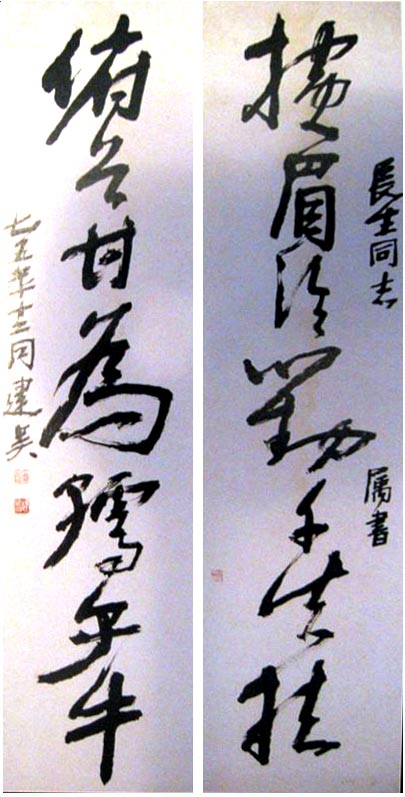 長生同志
属書
橫眉冷對千夫指
俯首甘為孺子牛
七五年十二月建吴